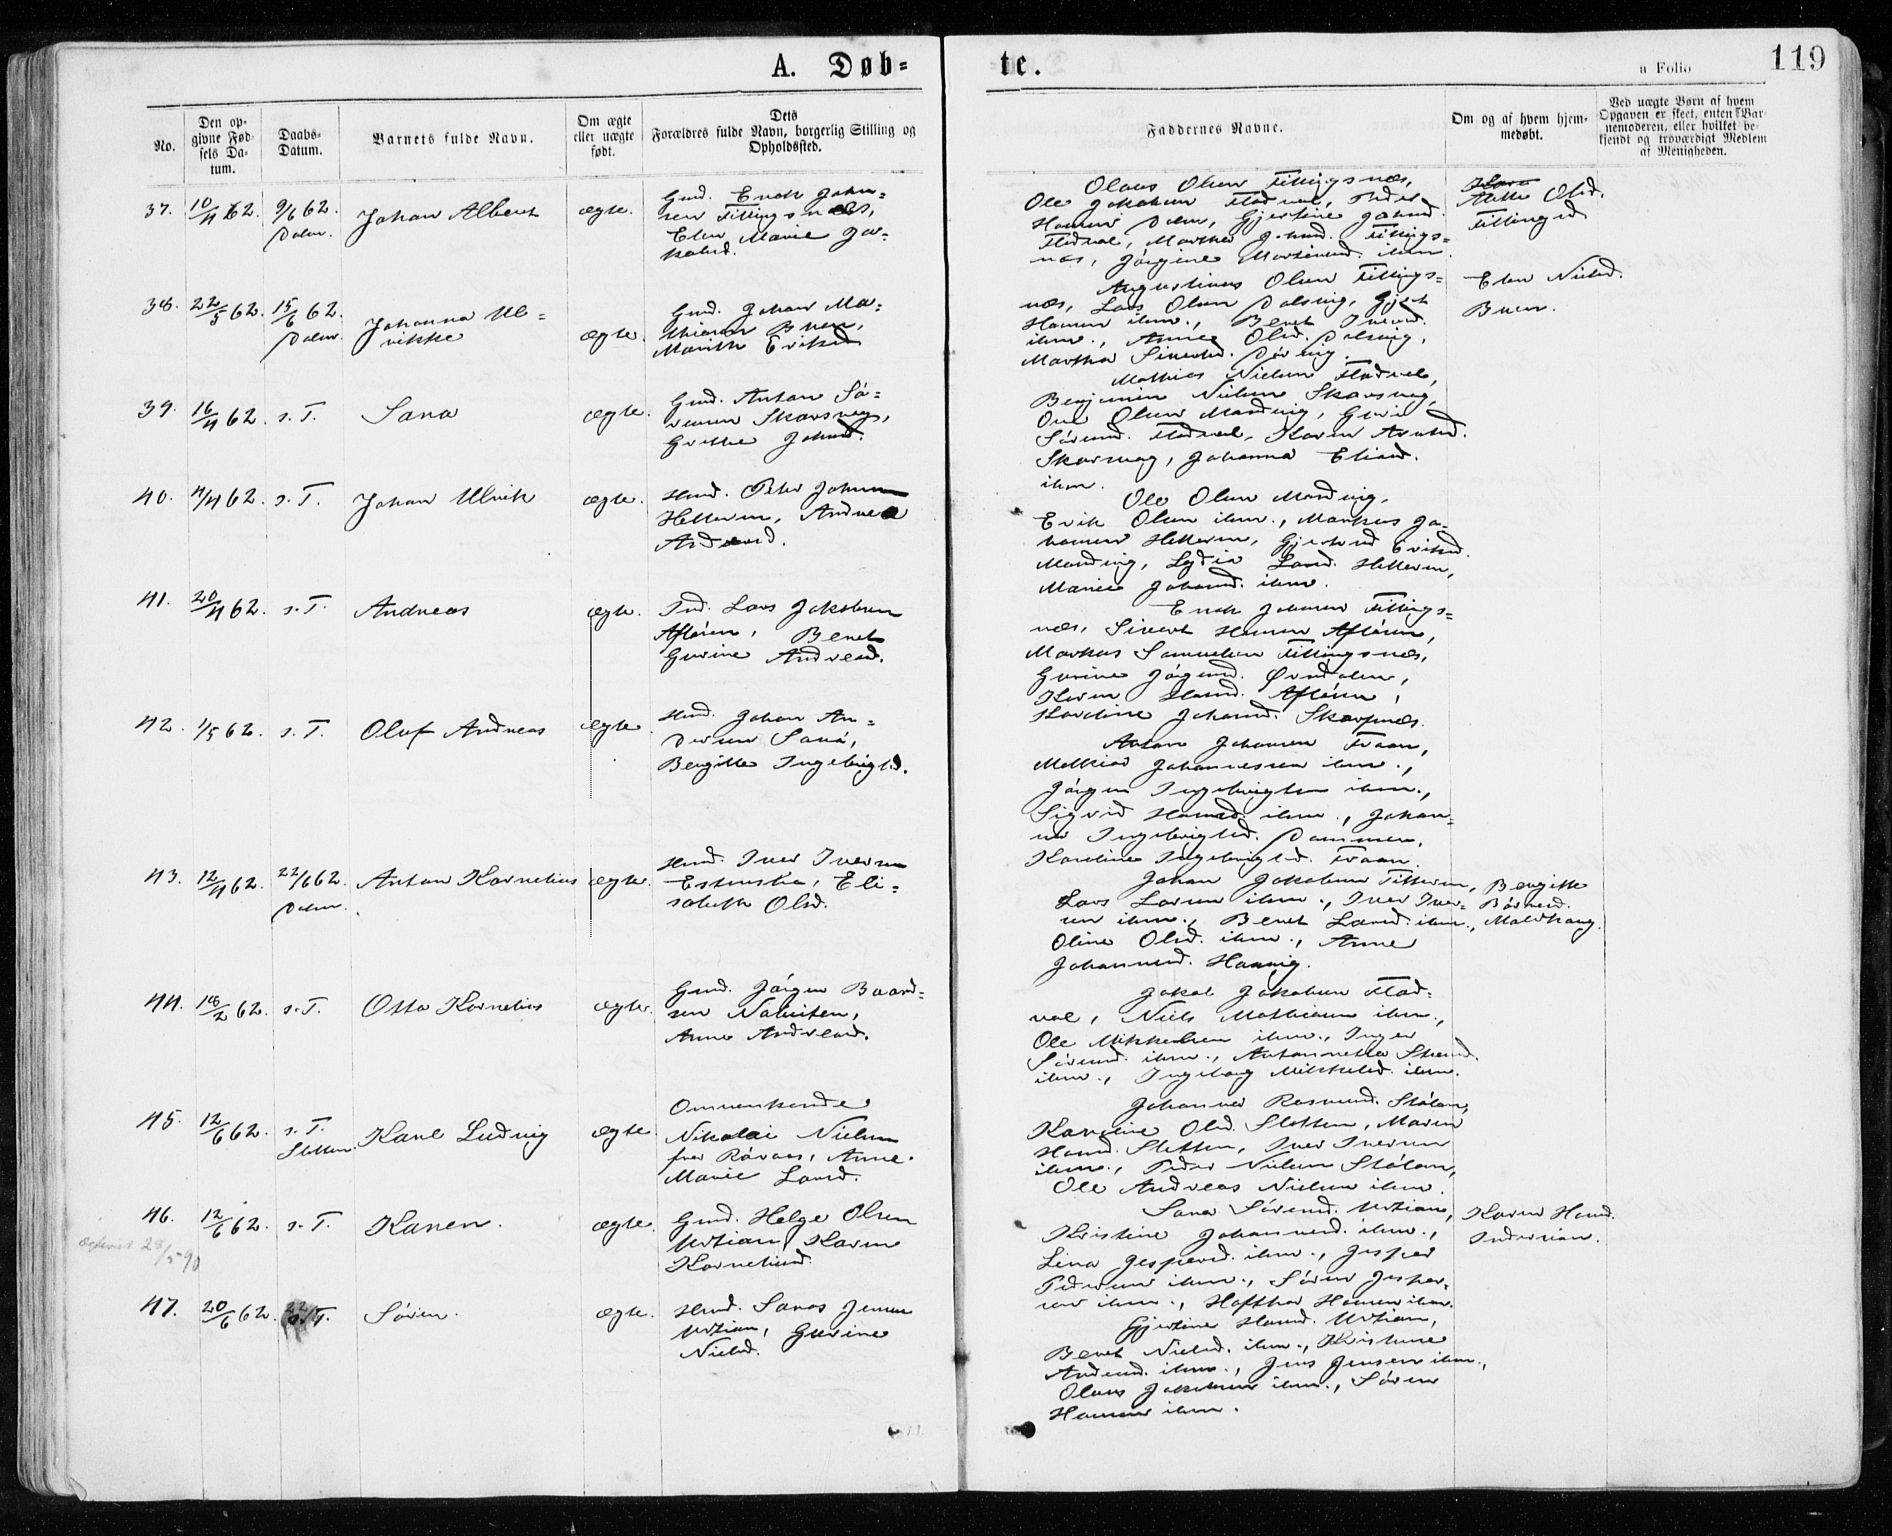 A. Døb-
te.
a Folio
119
No.
Den op-
givne Fød-
sels Da-
tum.
Daabs-
Datum.
Barnets fulde Navn.
Om ægte
eller uægte
født.
Dets
Forældres fulde Navn, borgerlig Stilling og
Opholdssted.
Faddernes Navne.
Om og af hvem hjem-
medøbt.
Ved uægte Børn af hvem
Opgaven er skeet, enten Bar-
nemoderen, eller hvilket be-
kjendt og troværdigt Medlem
af Menigheden.
37. 10/4 62. 9/6 62. Johan Albert ægte.
Dolm.
Gmd. Enok Johan-
sen Fittingsnæs,
Elen Marie Ja-
kobsd.
Olaus Olsen Fittingsnæs,
Ole Jakobsen Flatval, Peder
Hansen Dolm, Gjertine
Flatval, Martha Johsd. Fittings-
næs, Jørgine
Olsd.
38. 22/5 62. 15/6 62. Johanna Ul-
Dolm. rikke ægte.
Gmd. Johan Ma-
thiasen Buen,
Marith Eriksd.
Augustinus Olsen Fittings-
næs, Lars Olsen Dolsvig, Gjert
Hansen ibm., Beret
ibm., Anne Olsd. Dolsvig,
Martha Sivertsd.
Elen Nielsd.
Buen.
39. 16/4 62. s. T. Sara ægte.
Gmd. Anton Sø-
rensen Skarsvaag,
Grethe Johnd.
Mathias Nielsen Flatval,
Benjamin Nielsen Skarsvag,
Ole Olsen Mandvig, Guri
Sørensd. Flatval, Karen
Skarsvag, Johanna Eliasd.
ibm.
40. 4/4 62. s. T. Johan Ulrik ægte.
Hmd. Peter Johnsen
Hetteren, Andrea
Ole Olsen Mandvig,
Erik Olsen ibm., Markus Jo-
hansen Hetteren, Gjertrud Eriksd.
Mandvig, Lydia Larsd. Hetteren,
Marie Johansd. ibm.
41. 20/4 62. s. T. Andreas ægte.
Ind. Lars Jakobsen
Afløren, Beret
Gurine Andreasd.
Enok Johansen Fittings-
næs, Sivert Hansen Afløren,
Markus Samuelsen Fittingsnæs,
Gurine Jørgensd.
Karen Afløren,
Karoline Johansd. Skarpnæs.
42. 1/5 62. s. T. Oluf Andreas ægte
Hmd. Johan An-
dersen
Bergitte Ingebrigtsd.
Anton Johansen Fraan,
Mathias Johannesen ibm.,
Jørgen Ingebrigtsen ibm.,
Sigrid Hansd. ibm., Johan-
na Ingebrigtsd. Dammen,
Karoline Ingebrigtsd. Fraan.
43. 12/4 62. 22/6 62. Anton Kornelius ægte.
Dolm.
Hmd. Iver Iversen
Eli-
sabeth Olsd.
Johan Jakobsen Fitteren,
Lars Larsen ibm., Iver Iver-
sen ibm., Beret Larsd. ibm.,
Oline Olsd. ibm., Anne
Johannesd. Haavig.
Bergitte
44. 18/2 62. s. T. Otto Kornelius ægte.
Gmd. Jørgen Baard-
sen
Anne Andreasd.
Jakob Jakobsen Flat-
val, Niels Mathiasen ibm.,
Ole Mikkelsen ibm., Inger
Sørensd. ibm., Antonnetta
ibm., Ingeborg Mikkelsd. ibm.
45. 12/6 62. s. T. Karl Ludvig ægte
Sletten.
Omvankende
Nikolai Nielsen
fra Røraas, Anne
Marie Larsd.
Johanna Rasmusd. Stølan,
Karoline Olsd. Sletten, Maren
Hansd. Sletten, Iver Iversen
ibm., Peder Nielsen Stølan,
Ole Andreas Nielsen ibm.
46. 12/6 62. s. T. Karen. ægte.
28/5 90
Gmd. Helge Olsen
Ustian, Karen
Korneliusd.
Sara Sørensd. Ustian,
Kristine Johannesd. ibm.,
Lina Jespersd. ibm., Jesper
Pedersen ibm., Søren Jesper-
sen ibm., Hansen ibm.
Karen Hansd.
47. 20/6 62. s. T. Søren. ægte.
Hmd. Jensen
Ustian, Gurine
Nielsd.
Gjertine Hansd. Ustian,
Beret Nielsd. ibm., Kristine
Andersd. ibm., Jens Jensen ibm.,
Olaus Jakobsen ibm., Søren
Hansen ibm.